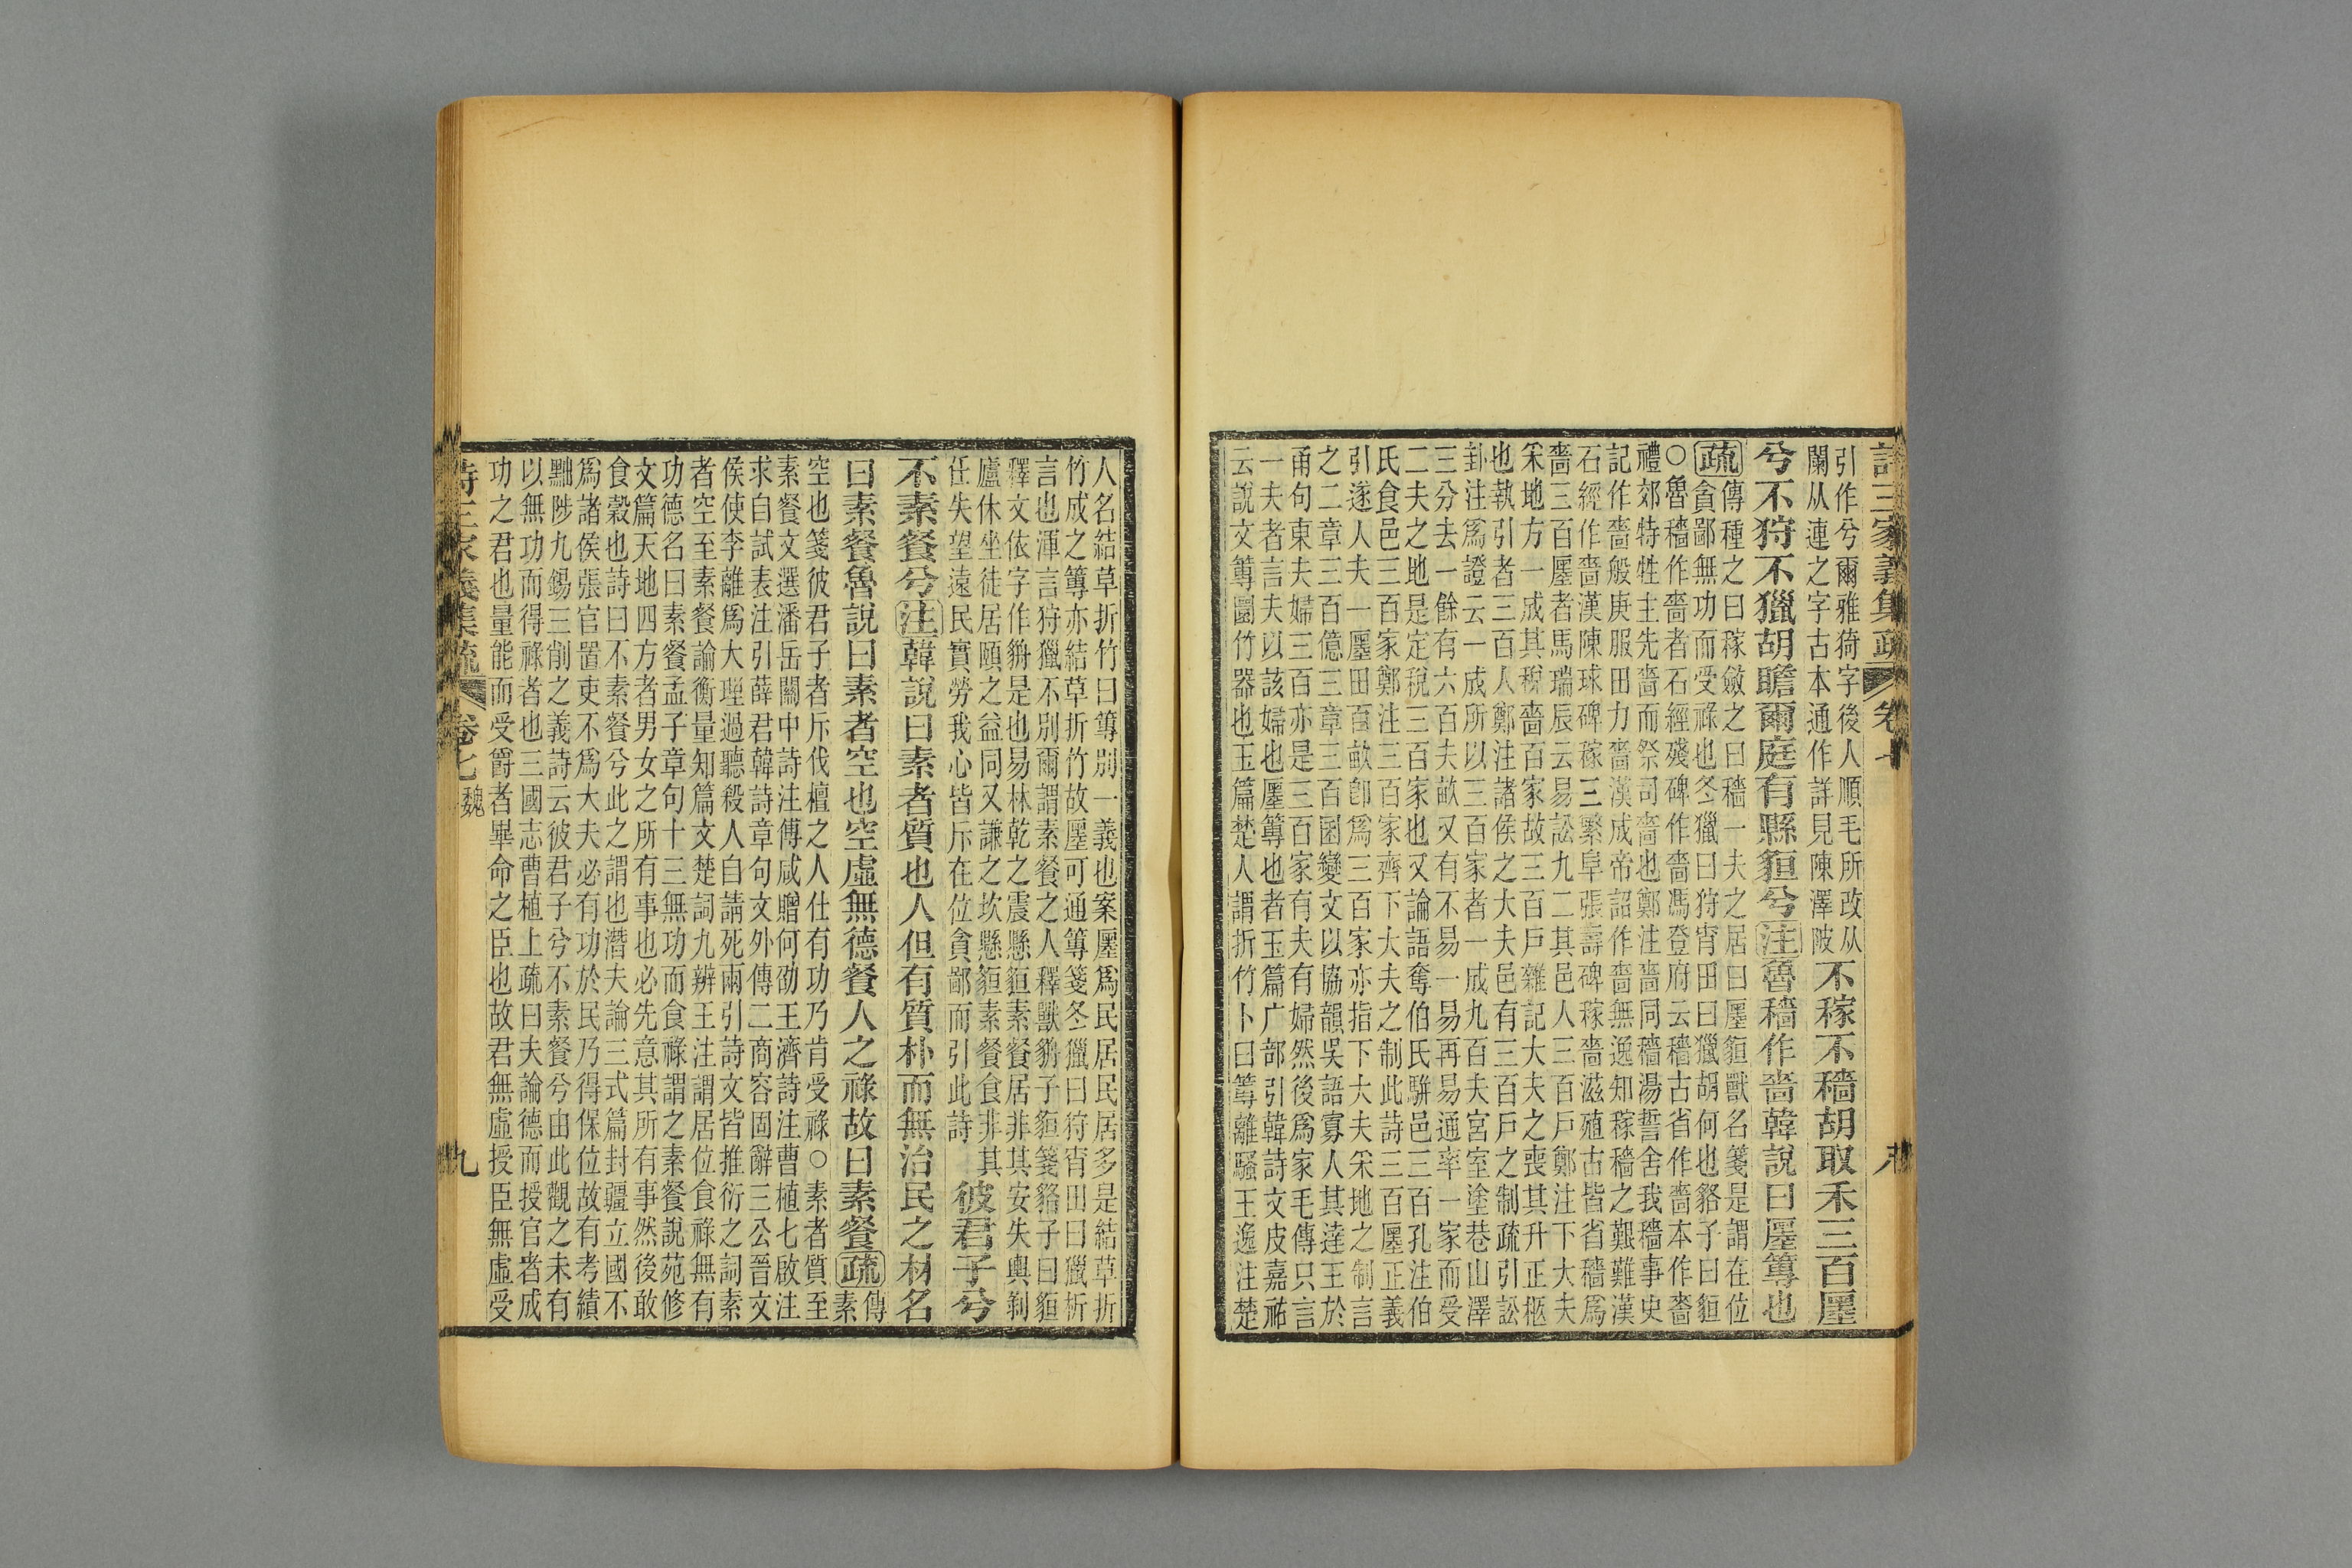 詩三家義集疏 卷七 八
引作兮爾雅猗字後人順毛所改从
闌从連之字古本通作詳見陳澤陂
不稼不穡胡取禾三百廛
兮不狩不獵胡瞻爾庭有縣貆兮注魯穡作嗇韓說曰廛篿也
疏
傳種之曰稼斂之曰穡一夫之居曰廛貆獸名箋是謂在位
貪鄙無功而受祿也冬獵曰狩宵田曰獵胡何也貉子曰貆
○魯穡作嗇者石經殘碑作嗇馮登府云穡古省作嗇本作嗇
禮郊特牲主先嗇而祭司嗇也鄭注嗇同穡湯誓舍我穡事史
記作嗇般庚服田力嗇漢成帝詔作嗇無逸知稼穡之艱難漢
石經作嗇漢陳球碑稼三繁阜張壽碑稼嗇滋殖古皆省穡爲
嗇三百廛者馬瑞辰云易訟九二其邑人三百戶鄭注下大夫
采地方一成其稅嗇百家故三百戶雜記大夫之喪其升正柩
也執引者三百人鄭注諸侯之大夫邑有三百戶之制疏引訟
卦注爲證云一成所以三百家者一成九百夫宮室塗巷山澤
三分去一餘有六百夫畝又有不易一易再易通率一家而受
二夫之地是定稅三百家也又論語奪伯氏駢邑三百孔注伯
氏食邑三百家鄭注三百家齊下大夫之制此詩三百廛正義
引遂人夫一廛田百畝卽爲三百家亦指下大夫采地之制言
之二章三百億三章三百囷變文以協韻吳語寡人其達王於
甬句東夫婦三百亦是三百家有夫有婦然後爲家毛傳只言
一夫者言夫以該婦也廛篿也者玉篇广部引韓詩文皮嘉祐
云說文篿圜竹器也玉篇楚人謂折竹卜曰篿離騷王逸注楚
人名結草折竹曰篿別一義也案廛爲民居民居多是結草折
竹成之篿亦結草折竹故廛可通篿箋冬獵曰狩宵田曰獵析
言也渾言狩獵不別爾謂素餐之人釋獸貈子貆箋貉子曰貆
釋文依字作貈是也易林乾之震懸貆素餐居非其安失輿剝
廬休坐徒居頤之益同又謙之坎懸貆素餐食非其
任失望遠民實勞我心皆斥在位貪鄙而引此詩
彼君子兮
不素餐兮注韓說曰素者質也人但有質朴而無治民之材名
曰素餐魯說曰素者空也空虛無德餐人之祿故曰素餐疏
傳
素
空也箋彼君子者斥伐檀之人仕有功乃肯受祿○素者質至
素餐文選潘岳關中詩注傅咸贈何劭王濟詩注曹植七啟注
求自試表注引薛君韓詩章句文外傳二商容固辭三公晉文
侯使李離爲大理過聽殺人自請死兩引詩文皆推衍之詞素
者空至素餐論衡量知篇文楚詞九辨王注謂居位食祿無有
功德名曰素餐孟子章句十三無功而食祿謂之素餐說苑修
文篇天地四方者男女之所有事也必先意其所有事然後敢
食穀也詩曰不素餐兮此之謂也潛夫論三式篇封疆立國不
爲諸侯張官置吏不爲大夫必有功於民乃得保位故有考績
黜陟九錫三削之義詩云彼君子兮不素餐兮由此觀之未有
以無功而得祿者也三國志曹植上疏曰夫論德而授官者成
功之君也量能而受爵者畢命之臣也故君無虛授臣無虛受
詩三家義集疏 卷七 魏 九